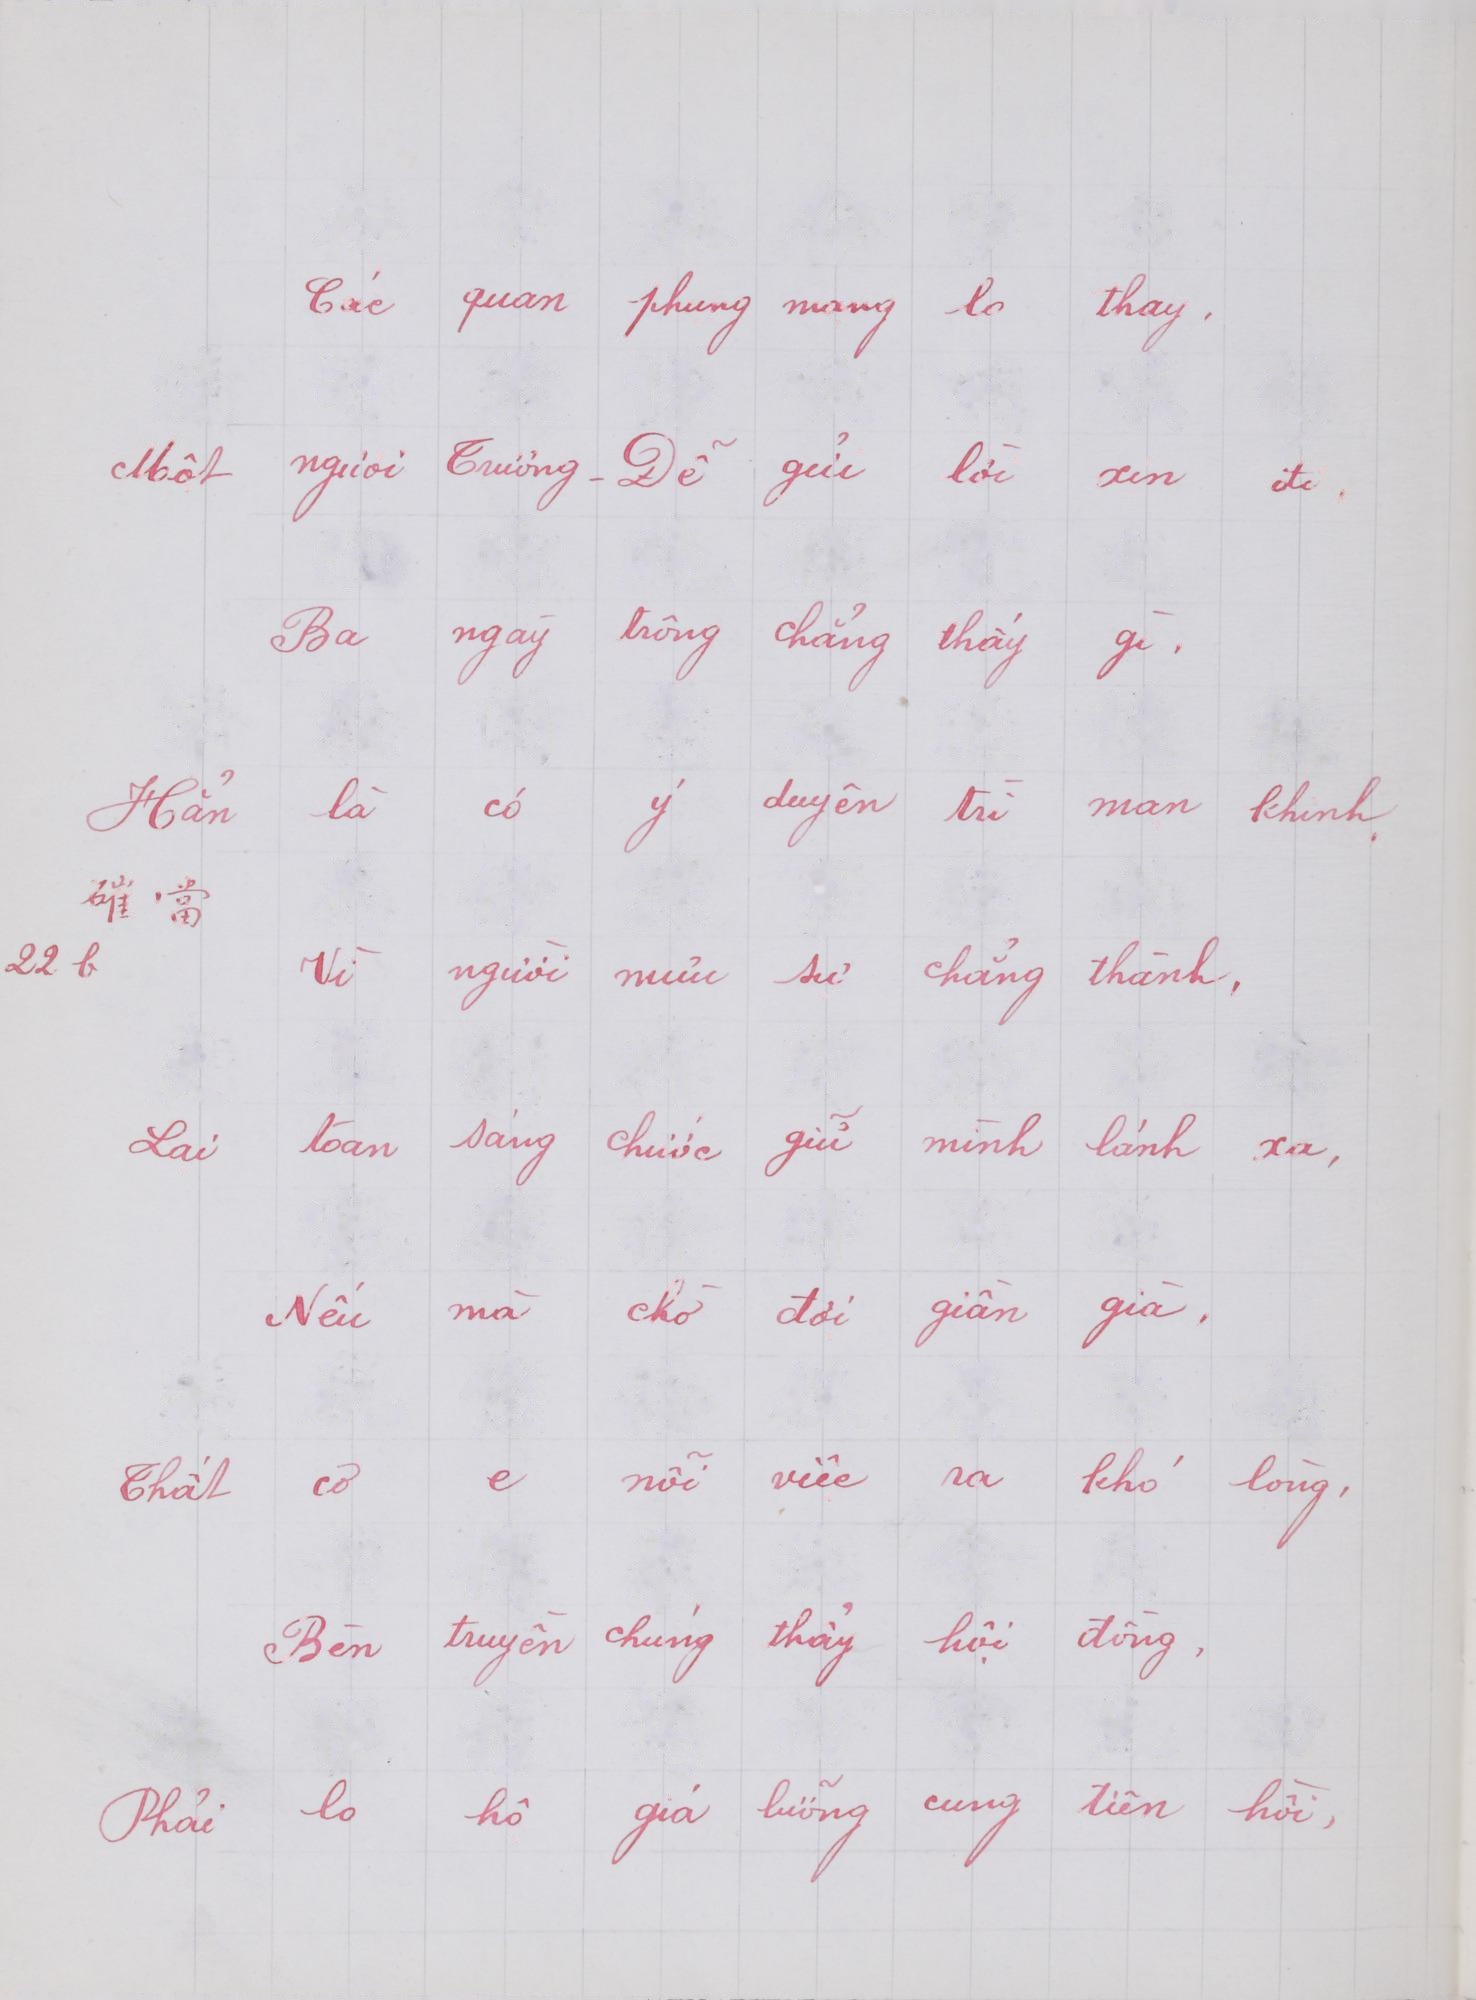 Các quan phung mang lo thay,
Một người Trương-Dễ gửi lời xin đi.
Ba ngày trông chẳng thấy gì,
Hẳn là có ý duyên trì man khinh.
確・當
22 b Vì người mưu sự chẳng thành,
Lai toan sáng chước giữ mình lánh xa,
Nếu mà chờ đơi giần già,
Thât cờ e nỗi viêc ra khó lòng,
Bèn truyền chúng thảy hội đồng,
Phải lo hô giá lưỡng cung tiên hồi,